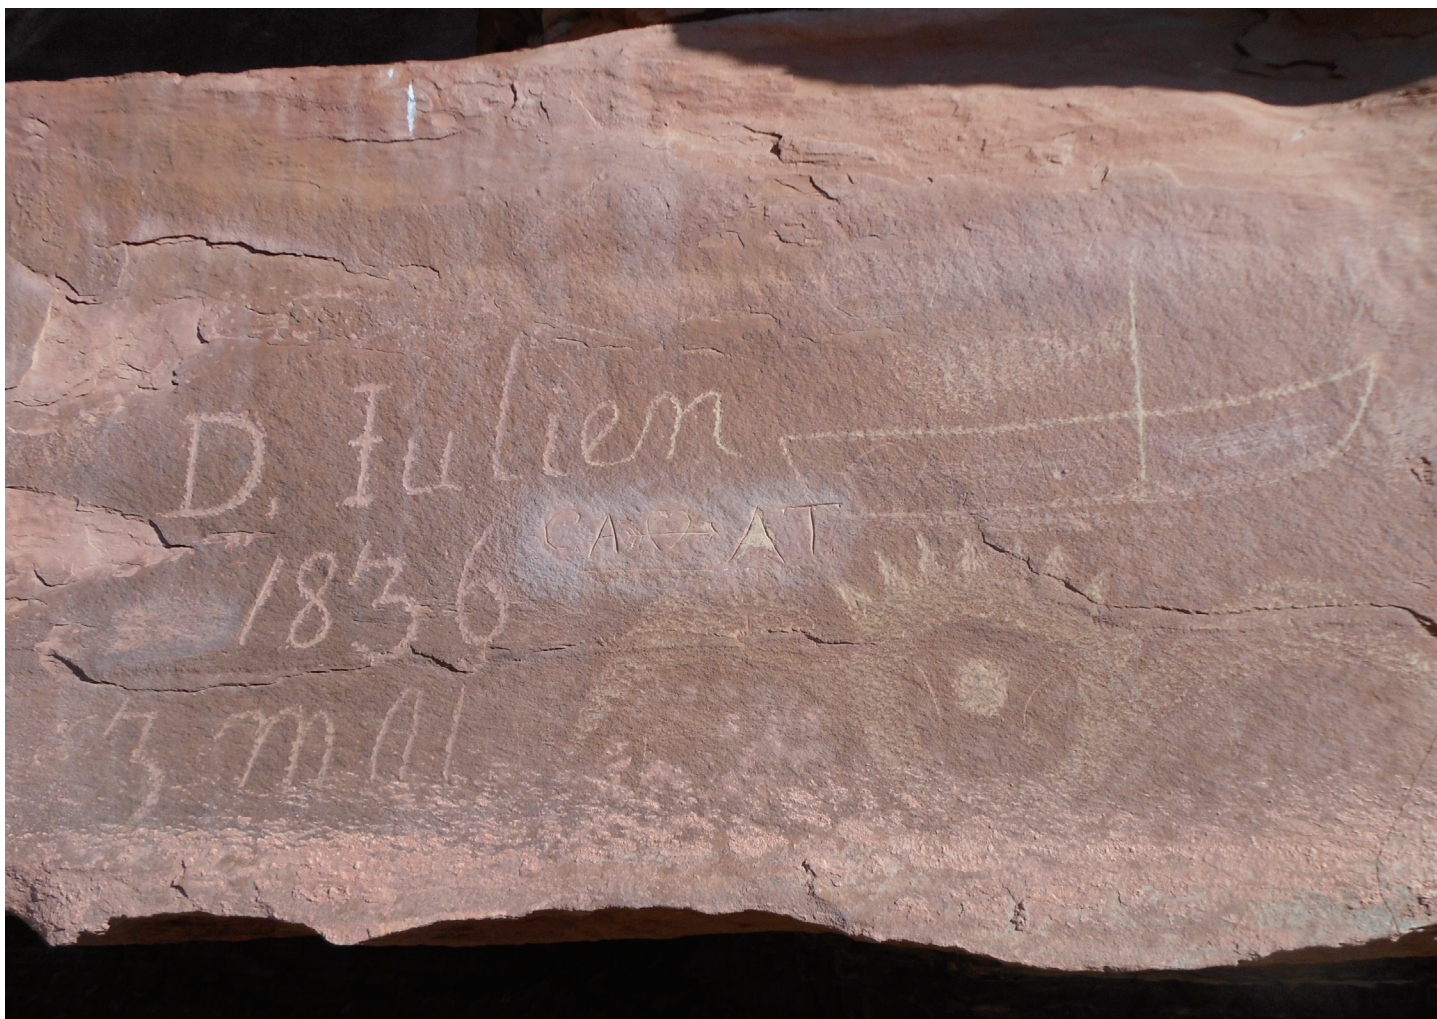 D. Iulien
CAT
1836
3 mai